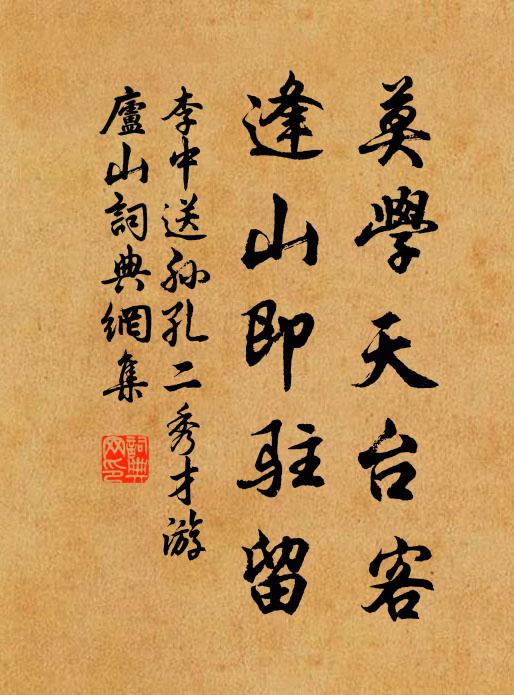 莫學天台客
逢山即駐留
李中送孫孔二秀才游
廬山詞典網集
詞典
网印